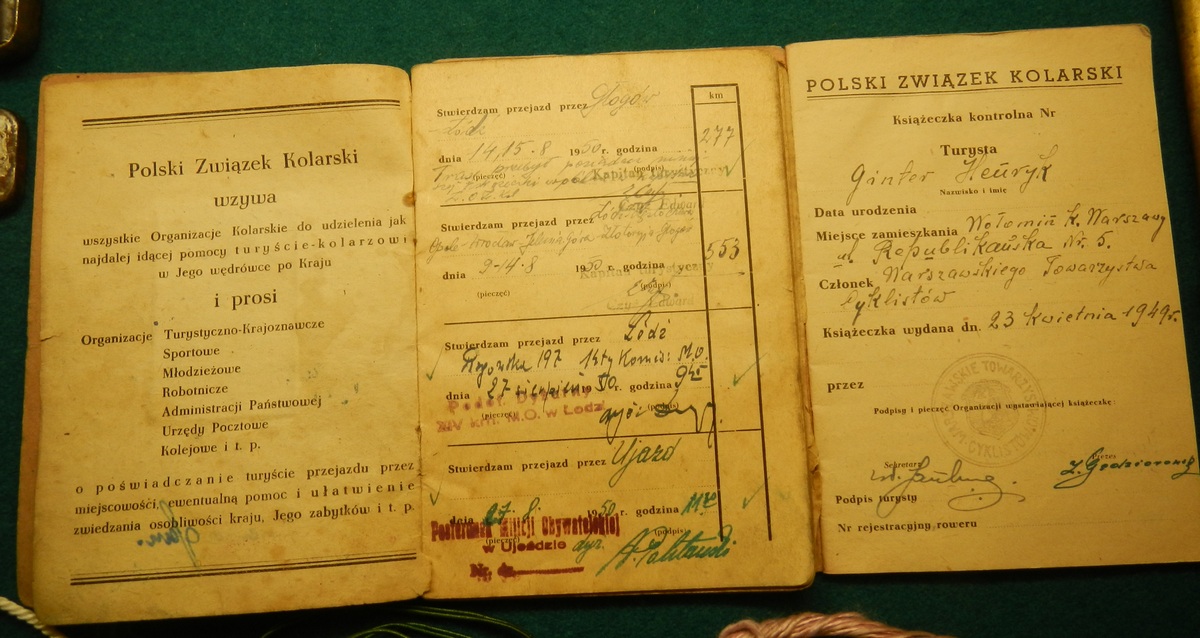 Polski Związek Kolarski
wzywa
wszystkie Organizacje Kolarskie do udzielenia jak
najdalej idącej pomocy turyście-kolarzowi
w Jego wędrówce po Kraju
i prosi
Organizacje Turystyczno-Krajoznawcze
Sportowe
Młodzieżowe
Robotnicze
Administracji Państwowej
Urzędy Pocztowe
Kolejowe i t. p.
o poświadczanie turyście przejazdu przez
miejscowości, ewentualną pomoc i ułatwienie
zwiedzania osobliwości kraju, Jego zabytków i t. p.
km
Stwierdzam przejazd przez Głogów
Łódź
277
dnia 14,15-8 1950 r. godzina
(pieczęć) (podpis)
Kapitan turystyczny
Edward
Stwierdzam przejazd przez Łódź
Opole-Wrocław-Jelenia Góra-Złotoryja-Głogów
553
dnia 9-14-8 1950 r. godzina
Kapitan turystyczny
(pieczęć) (podpis)
Edward
Stwierdzam przejazd przez Łódź
197 Komis: M.O.
dnia 27 sierpnia 50 r. godzina 9
(pieczęć) (podpis)
XIV kom. M.O. w Łodzi
Stwierdzam przejazd przez Ujazd
dnia 27.8. 1950 r. godzina
Posterunek Milicji Obywatelskiej
(pieczęć) (podpis)
w Ujeździe dyż.
Nr.
POLSKI ZWIĄZEK KOLARSKI
Książeczka kontrolna Nr
Turysta
Ginter Henryk
Nazwisko i imię
Data urodzenia
Miejsce zamieszkania Wołomin k. Warszawy
ul. Republikańska Nr. 5.
Członek Warszawskiego Towarzystwa
Cyklistów
Książeczka wydana dn. 23 kwietnia 1949 r.
przez
Podpisy i pieczęć Organizacji wystawiającej książeczkę:
Sekretarz Prezes
Podpis turysty
Nr rejestracyjny roweru